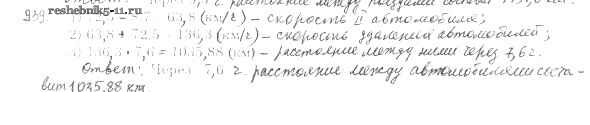 расстояние между поездами
939. www.reshebnik5-11.ru 63,8 (км/г) – скорость II автомобиля;
2) 63,8 + 72,5 = 136,3 (км/г) – скорость удаления автомобилей;
3) 136,3 · 7,6 = 1035,88 (км) – расстояние между ними через 7,6 г.
Ответ: Через 7,6 г. расстояние между автомобилями соста-
вит 1035.88 км